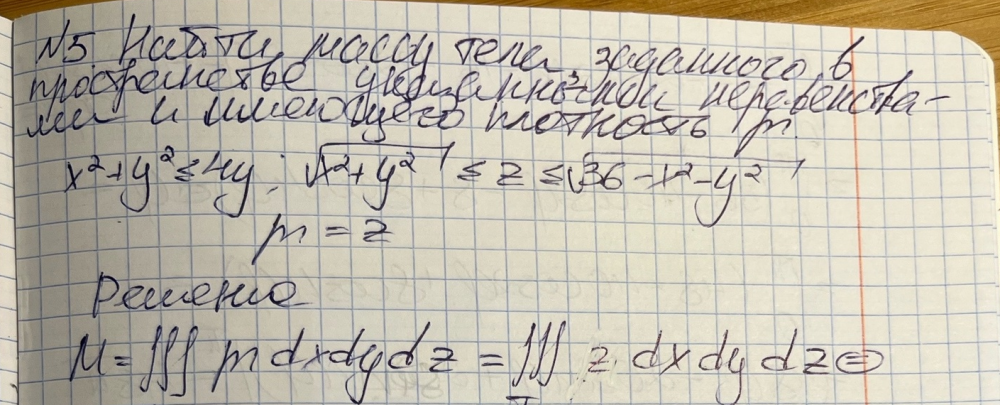 N5 Найти массу тела заданного в
пространстве указанными неравенства-
ми и имеющего плотность m.
x²+y²≤4y; √x²+y² ≤ z ≤ √36-x²-y²
m = z
Решение
M = ∭ m dxdydz = ∭ z dx dy dz ⊜